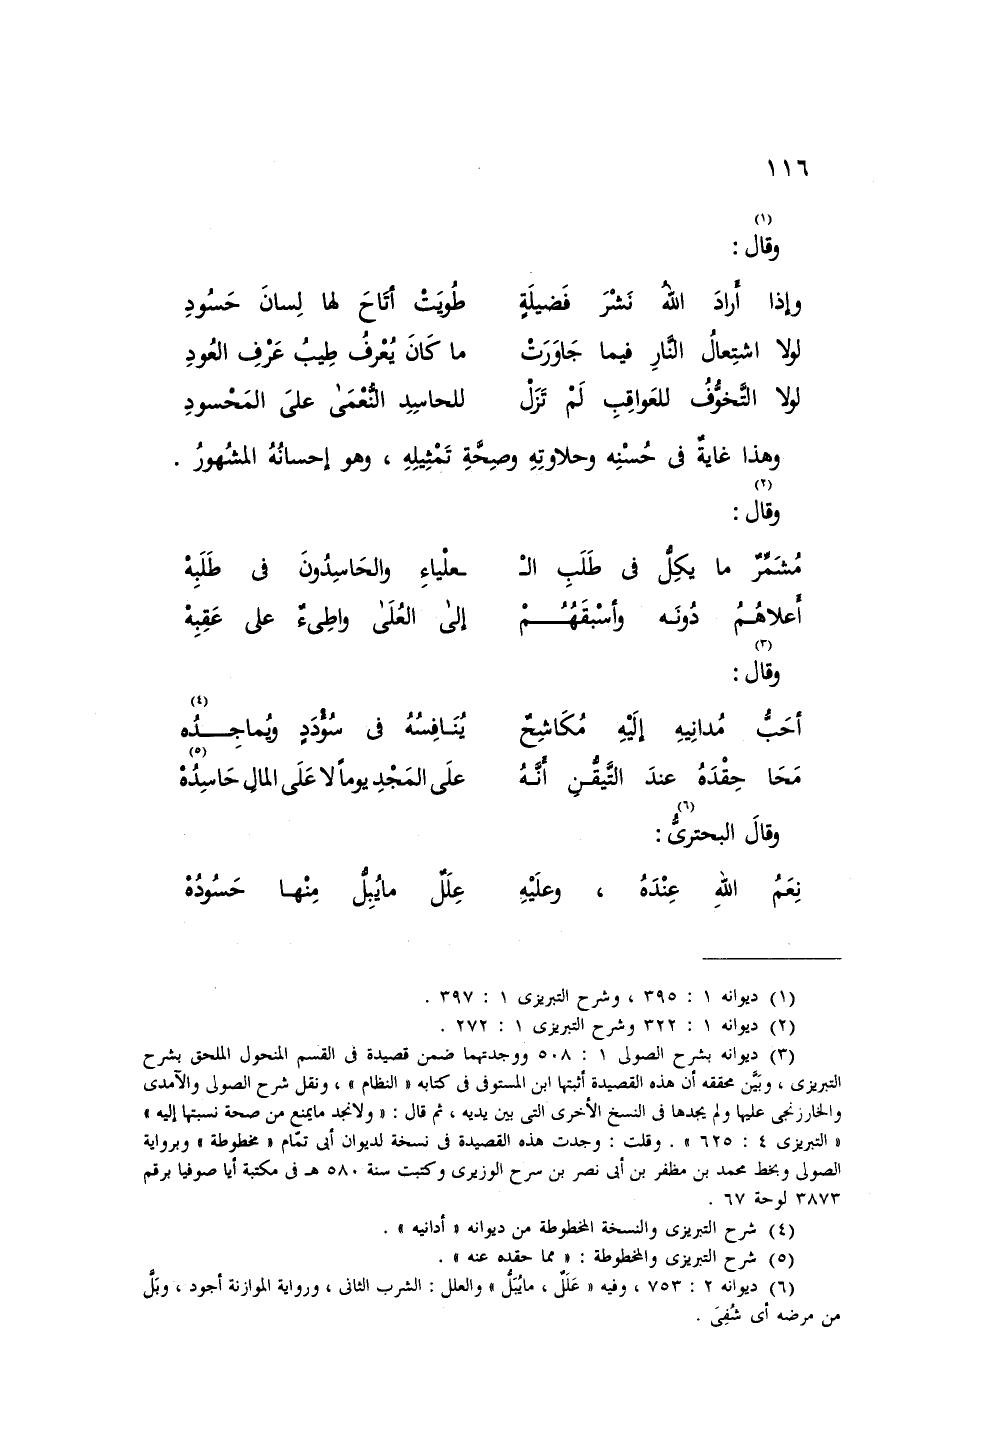 ١١٦
(١)
وقال :
وإذا أَرادَ اللهُ نَشْرَ فَضيلَةٍ طُويَتْ أتَاحَ لها لِسانَ حَسُودِ
لولا اشتِعالُ النَّارِ فيما جَاوَرَتْ ما كَانَ يُعْرفُ طِيبُ عَرْفِ العُودِ
لولا التَّخوُّفُ للعَواقِبِ لَمْ تَزَلْ للحاسِدِ النُّعْمَىٰ علىَ المَحْسودِ
وهذا غايةٌ فى حُسْنِه وحلاوتِهِ وصِحَّةِ تَمْثِيلِهِ ، وهو إحسانُهُ المشهورُ .
(٢)
وقال :
مُشَمِّرٌ ما يكِلُّ فى طَلَبِ الـْ ـعلْياءِ والحَاسِدُونَ فى طَلَبِهْ
أَعلاهُـمُ دُونَـه وأسْبقَهُـــمْ إلىٰ العُلَىٰ واطِىءٌ على عَقِبِهْ
(٣)
وقال :
(٤)
أحَبُّ مُدانِيهِ إلَيْهِ مُكَاشِحٌ يُنَـافِسُهُ فى سُؤْدَدٍ ويُماجِـــدُه
(٥)
مَحَا حِقْدَهُ عندَ التَّيقُّـنِ أَنَّـهُ علَى المَجْدِ يوماً لا عَلَى المالِ حَاسِدُهْ
(٦)
وقالَ البحترىُّ :
نِعَمُ اللهِ عِنْدَهُ ، وعلَيْهِ عِلَلٌ مايُبِلُّ مِنْهـا حَسُودُهْ
(١) ديوانه ١ : ٣٩٥ ، وشرح التبريزى ١ : ٣٩٧ .
(٢) ديوانه ١ : ٣٢٢ وشرح التبريزى ١ : ٢٧٢ .
(٣) ديوانه بشرح الصولى ١ : ٥٠٨ ووجدتهما ضمن قصيدة فى القسم المنحول الملحق بشرح
التبريزى ، وبَيَّن محققه أن هذه القصيدة أثبتها ابن المستوفى فى كتابه « النظام » ، ونقل شرح الصولى والآمدى
والخارزنجى عليها ولم يجدها فى النسخ الأخرى التى بين يديه ، ثم قال : « ولانجد مايمنع من صحة نسبتها إليه »
« التبريزى ٤ : ٦٢٥ » . وقلت : وجدت هذه القصيدة فى نسخة لديوان أبى تمّام « مخطوطة » وبرواية
الصولى وبخط محمد بن مظفر بن أبى نصر بن سرح الوزيرى وكتبت سنة ٥٨٠ هـ فى مكتبة أيا صوفيا برقم
٣٨٧٣ لوحة ٦٧ .
(٤) شرح التبريزى والنسخة المخطوطة من ديوانه « أدانيه » .
(٥) شرح التبريزى والمخطوطة : « مما حقده عنه » .
(٦) ديوانه ٢ : ٧٥٣ ، وفيه « عَلَلٌ ، مايُبَلُّ » والعلل : الشرب الثانى ، ورواية الموازنة أجود ، وبَلَّ
من مرضه أى شُفِىَ .